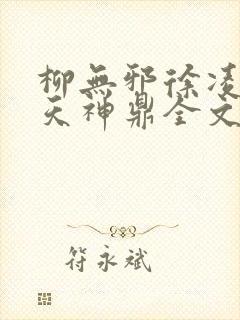 柳無邪徐凌
天神鼎全文
符永斌